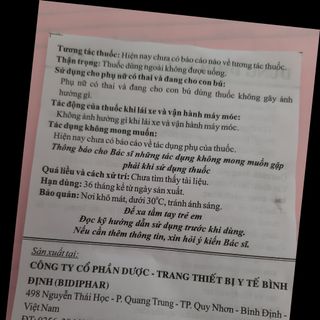 Tương tác thuốc: Hiện nay chưa có báo cáo nào về tương tác thuốc.
Thận trọng: Thuốc dùng ngoài không được uống.
Sử dụng cho phụ nữ có thai và đang cho con bú:
Phụ nữ có thai và đang cho con bú dùng thuốc không gây ảnh
hưởng gì.
Tác động của thuốc khi lái xe và vận hành máy móc:
Không ảnh hưởng gì khi lái xe và vận hành máy móc.
Tác dụng không mong muốn:
Hiện nay chưa có báo cáo về tác dụng phụ của thuốc.
Thông báo cho Bác sĩ những tác dụng không mong muốn gặp
phải khi sử dụng thuốc
Quá liều và cách xử trí: Chưa tìm thấy tài liệu.
Hạn dùng: 36 tháng kể từ ngày sản xuất.
Bảo quản: Nơi khô mát, dưới 30°C, tránh ánh sáng.
Để xa tầm tay trẻ em
Đọc kỹ hướng dẫn sử dụng trước khi dùng.
Nếu cần thêm thông tin, xin hỏi ý kiến Bác sĩ.
Sản xuất tại:
CÔNG TY CỔ PHẦN DƯỢC - TRANG THIẾT BỊ Y TẾ BÌNH
ĐỊNH (BIDIPHAR)
498 Nguyễn Thái Học - P. Quang Trung - TP. Quy Nhơn - Bình Định -
Việt Nam